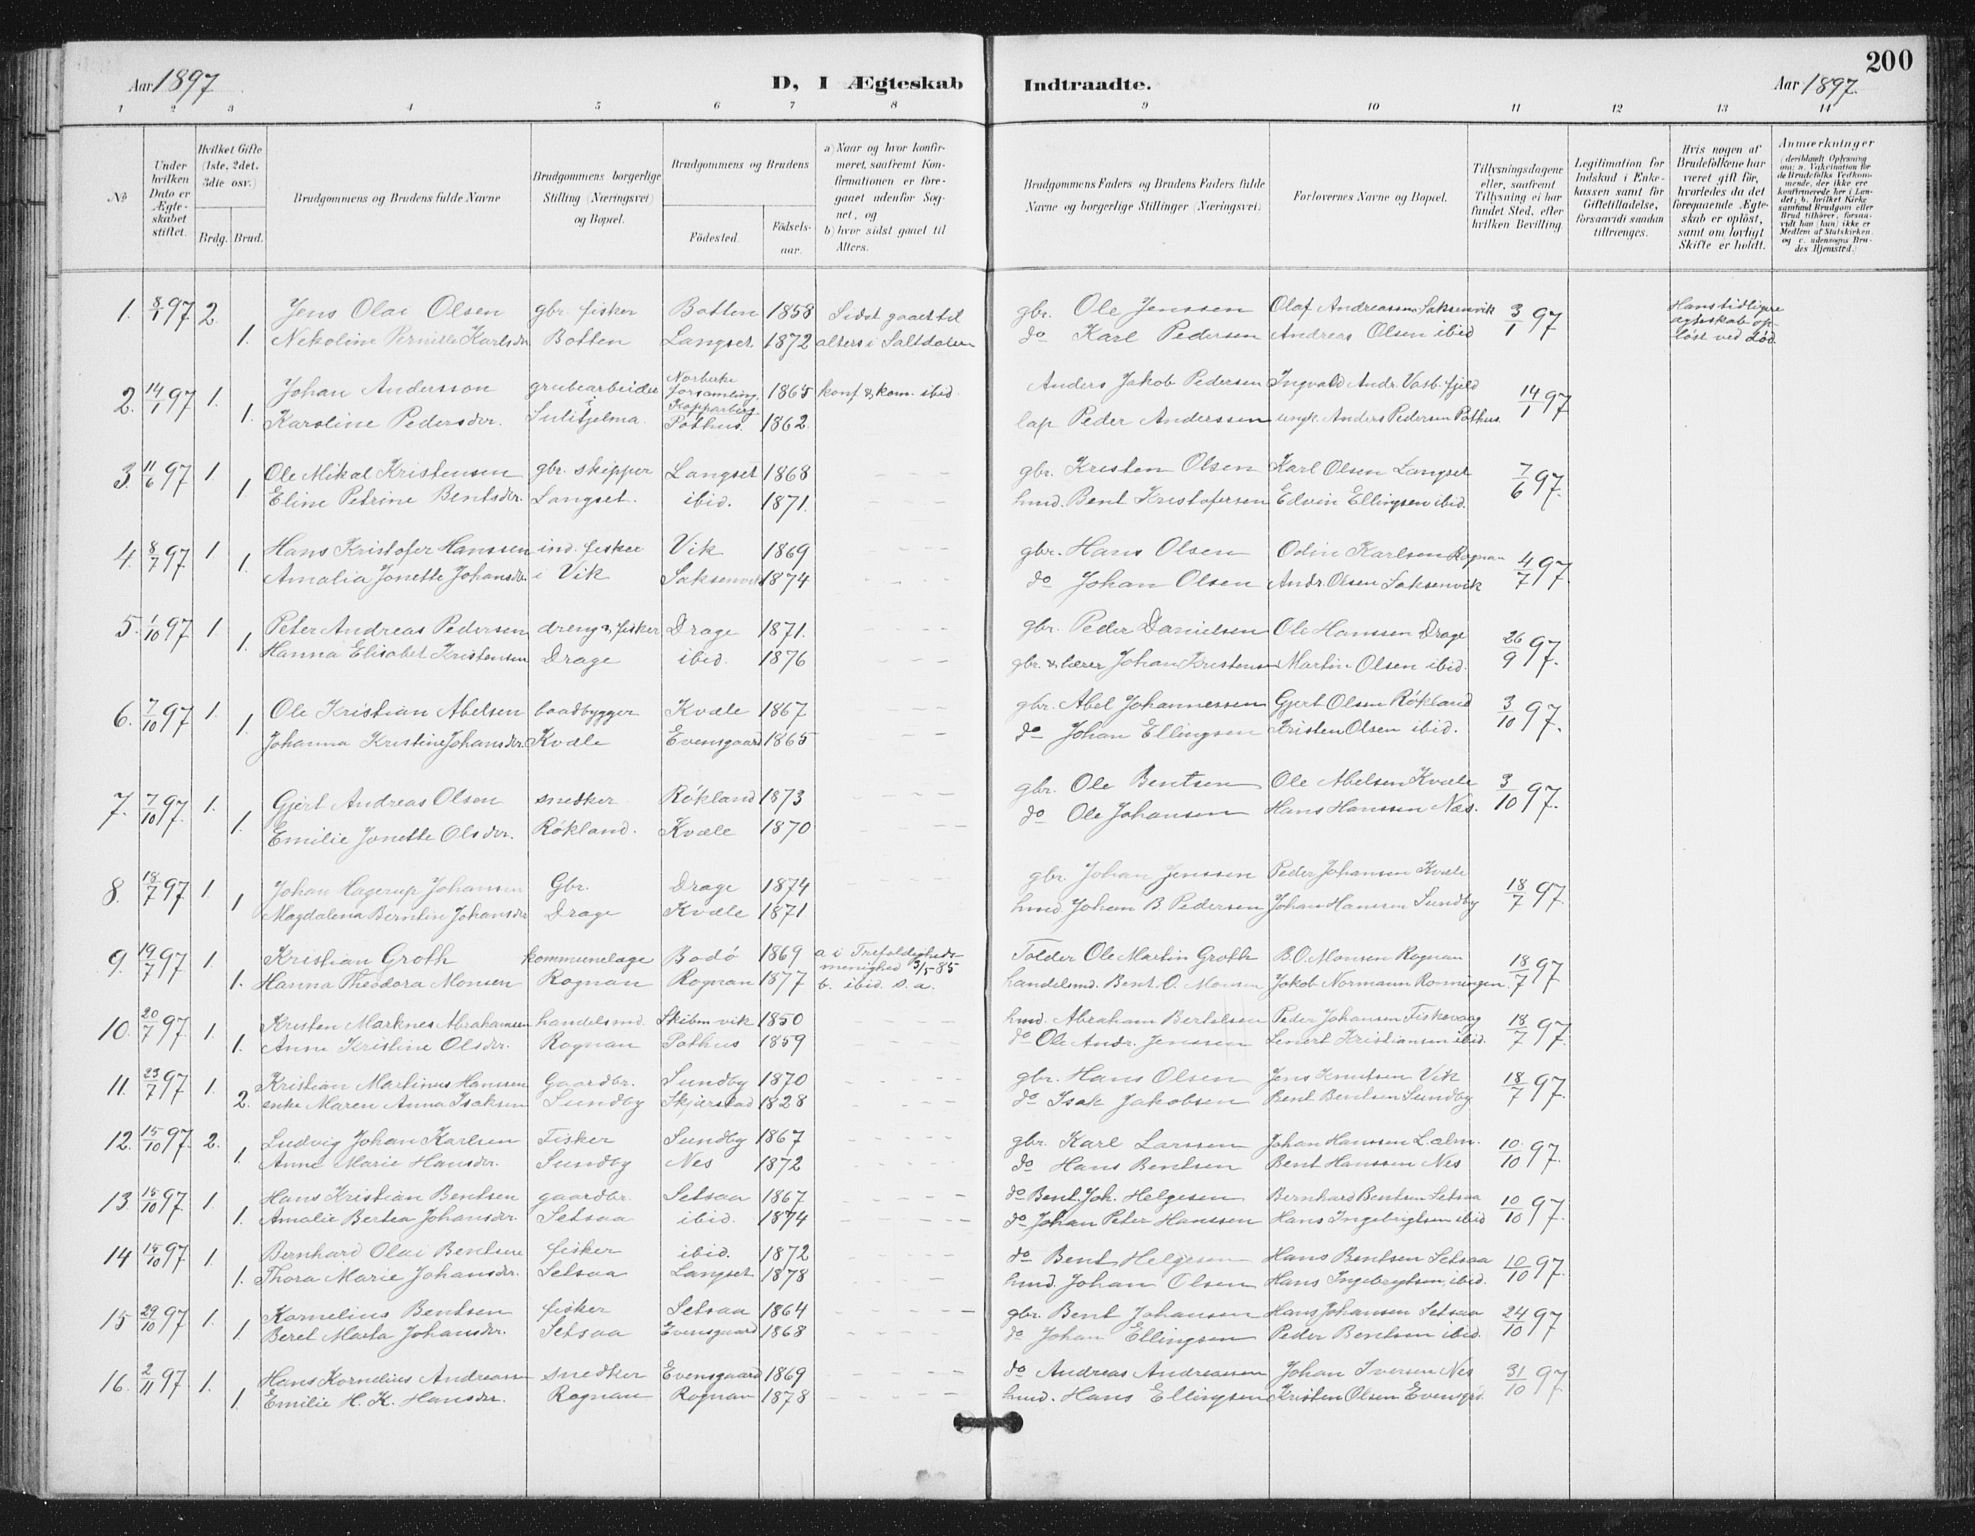 200
Aar 1897
D, I Ægteskab Indtraadte.
Aar 1897.
1 2 3 4 5 6 7 8 9 10 11 12 13 14
No
Under hvilken Dato er Ægteskabet stiftet.
Hvilket Gifte (1ste, 2det, 3die osv.)
Brdg. Brud.
Brudgommens og Brudens fulde Navne
Brudgommens borgerlige Stilling (Næringsvei) og Bopæl.
Brudgommens og Brudens
Fødested.
Fødselsaar.
a) Naar og hvor konfirmeret, saafremt Konfirmationen er foregaaet udenfor Sognet, og
b) hvor sidst gaaet til Alters.
Brudgommens Faders og Brudens Faders fulde Navne og borgerlige Stillinger (Næringsvei)
Forlovernes Navne og Bopæl.
Tillysningsdagene eller, saafremt Tillysning ei har fundet Sted, efter hvilken Bevilling
Legitimation for Indskud i Enkekassen samt for Giftetilladelse, forsaavidt saadan tiltrænges.
Hvis nogen af Brudefolkene har været gift før, hvorledes da det foregaaende Ægteskab er opløst, samt om lovligt Skifte er holdt.
Anmærkninger
(deriblandt Oplysning om: a. Vakcination for de Brudefolks Vedkommende, der ikke ere konfirmerede her i Landet; b. hvilket Kirkesamfund Brudgom eller Brud tilhører, forsaavidt han (hun) ikke er Medlem af Statskirken, og c. udensogns Brudes Hjemsted.)
1. 8/1 97 2. Jens Olai Olsen gbr. fisker Botten 1858 Sidst gaaet til gbr. Ole Jenssen Olaf Andreassen Saksenvik 3/1 97 Hans tidligere
1. Nekoline Pernille Karlsdr Botten Langset 1872 alters i Saltdalen do Karl Pedersen Andreas Olsen ibid ægteskab opløst ved Død.
2. 14/1 97 1. Johan Andersson grubearbeider Norberke Forsamling, Kopparberg 1865 konf & kom. ibid. Anders Jakob Pedersen Ingvald Andr. Vasb.fjeld 14/1 97
1. Karoline Pedersdr. i Sulitjelma. Pothus. 1862. lap Peder Anderssen ungk. Anders Pedersen Pothus.
3. 11/6 97 1. Ole Mikal Kristensen gbr. skipper Langset 1868 gbr. Kristen Olsen Karl Olsen Langset 7/6 97.
1 Eline Petrine Bentsdr. Langset. ibid. 1871. hmd. Bent Kristofersen Edvin Ellingsen ibid.
4. 8/7 97 1. Hans Kristofer Hanssen ind. fisker Vik 1869 gbr. Hans Olsen Odin Karlsen Rognan 4/7 97.
1. Amalia Jonette Johansdr i Vik Saksenvik 1874 do Johan Olsen Andr. Olsen Saksenvik
5. 1/10 97 1. Peter Andreas Pedersen dreng & fisker Drage 1871. gbr. Peder Danielsen Ole Hanssen Drage 26/9 97.
1. Hanna Elisabet Kristensen Drage ibid. 1876 gbr. & lærer Johan Kristensen Martin Olsen ibid.
6. 7/10 97 1. Ole Kristian Abelsen baadbygger Kvæle 1867 gbr. Abel Johannessen Gjert Olsen Røkland 3/10 97.
1 Johanna Kristine Johansdr. Kvæle Evensgaard 1865 do Johan Ellingsen Kristen Olsen ibid.
7. 7/10 97. 1. Gjert Andreas Olsen snedker Røkland 1873 gbr. Ole Bentsen Ole Abelsen Kvæle 3/10 97.
1. Emilie Jonette Olsdr. Røkland. Kvæle 1870 do Ole Johansen Hans Hanssen Næs.
8. 18/7 97 1. Johan Hagerup Johansen Gbr. Drage 1874 gbr. Johan Jenssen Peder Johansen Kvæle 18/7 97.
1 Magdalena Berntine Johansdr Drage Kvæle 1871 hmd. Johan B Pedersen Johan Hanssen Sundby
9. 19/7 97 1. Kristian Groth kommunelæge Bodø 1869 a i Trefoldigheds- Tolder Ole Martin Groth B.O. Monsen Rognan 18/7 97
1. Hanna Theodora Monsen Rognan Rognan 1877 menighed 3/5-85 b. ibid. s. a. handelsmd. Bent O. Monsen Jakob Normann Ronningen
10. 20/7 97. 1. Kristen Marknes Abrahamsen handelsmd. Skibmvik 1850 hmd. Abraham Bertelsen Peder Johansen Fiskevaag 18/7 97.
1. Anne Kristine Olsdr. Rognan Pothus 1859 do Ole Andr. Jenssen Lenert Kristiansen ibid.
11. 23/7 97 1. Kristian Martinus Hanssen Gaardbr. Sundby 1870 gbr. Hans Olsen Jens Knutsen Vik 18/7 97.
2. enke Maren Anna Isaksen Sundby Skjerstad 1828 do Isak Jakobsen Bent Bentsen Sundby
12. 15/10 97 2. Ludvig Johan Karlsen Fisker Sundby 1867 gbr. Karl Larssen Johan Hanssen L.alm. 10/10 97.
1. Anne Marie Hansdr. Sundby Nes 1872 do Hans Bentsen Bent Hanssen Nes
13. 15/10 97 1. Hans Kristian Bentsen gaardbr. Setsaa 1867 do Bent Joh. Helgesen Bernhard Bentsen Setsaa 10/10 97.
1. Amalie Bertea Johansdr. Setsaa ibid. 1874 do Johan Peter Hanssen Hans Ingebrigtsen ibid
14 15/10 97 1. Bernhard Olai Bentsen fisker ibid. 1872 do Bent Helgesen Hans Bentsen Setsaa 10/10 97.
1. Thora Marie Johansdr. Setsaa Langset 1878 hmd. Johan Olsen Hans Ingebrigtsen, ibid.
15 29/10 97 1. Kornelius Bentsen fisker Setsaa 1864 gbr. Bent Johansen Hans Johansen Setsaa 24/10 97
1 Beret Marta Johansdr. Setsaa Evensgaard 1868 do Johan Ellingsen Peder Bentsen ibid.
16. 2/11 97 1. Hans Kornelius Andreassen snedker Evensgaard 1869 do Andreas Andreassen Johan Iversen Nes 31/10 97
1. Emilie H. K. Hansdr. Rognan Rognan 1878 hmd. Hans Ellingsen Kristen Olsen Evensgrd.